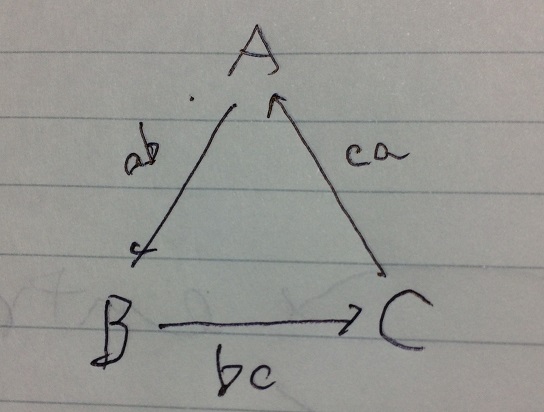 A
ab
ca
B
C
bc